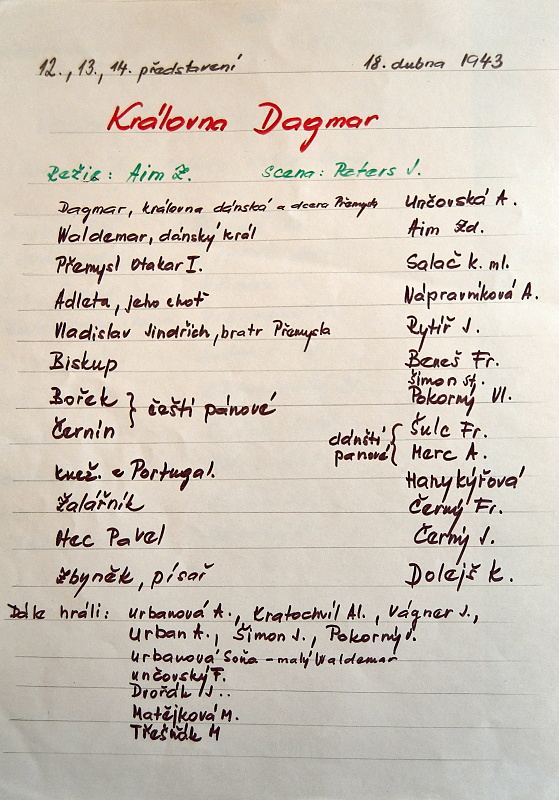 12., 13., 14. představení 18. dubna 1943
Královna Dagmar
Režie: Aim Z. Scena: Peters J.
Dagmar, královna dánská a dcera Přemysla Unčovská A.
Waldemar, dánský král Aim Zd.
Přemysl Otakar I. Salač k. ml.
Adleta, jeho choť Nápravníková A.
Vladislav Jindřich, bratr Přemysla Rytíř J.
Biskup Beneš Fr.
Šimon st.
Bořek Pokorný Vl.
} čeští pánové
Černín dánští pánové { Šulc Fr.
Herc A.
kněž. z Portugal. Hanykýřová
Žalářník Černý Fr.
Hec Pavel Černý J.
Zbyněk, písař Dolejš K.
Dále hráli: Urbanová A., Kratochvíl Al., Vágner J.,
Urban A., Šimon J., Pokorný J.
Urbanová Soňa - malý Waldemar
Unčovský F.
Dvořák J..
Matějková M.
Třešňák M